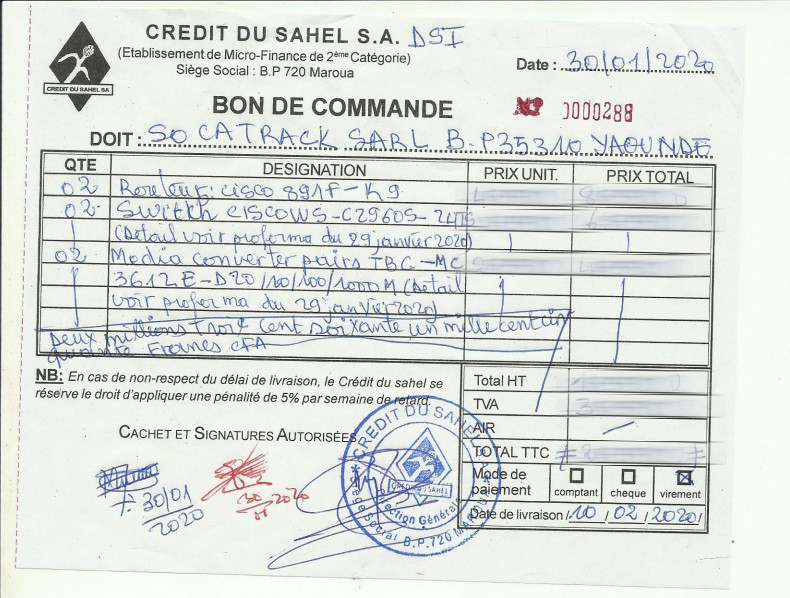 CREDIT DU SAHEL S.A. DSI
(Etablissement de Micro-Finance de 2ème Catégorie)
Siège Social : B.P 720 Maroua
CREDIT DU SAHEL SA
Date : 30/01/2020
BON DE COMMANDE
N° 0000288
DOIT : SOCATRACK SARL B.P 35310 YAOUNDE
QTE DESIGNATION PRIX UNIT. PRIX TOTAL
02 Routeur cisco 891F-K9
02 Switch CISCO WS-C2960S-24TS
(Detail voir proforma du 29 janvier 2020)
02 Media converter pairs TBC-MC
3612E-D20/10/100/1000M (Detail
voir proforma du 29 janvier 2020)
Deux millions trois cent soixante un mille cent cin
quante Francs CFA
NB: En cas de non-respect du délai de livraison, le Crédit du sahel se
réserve le droit d'appliquer une pénalité de 5% par semaine de retard.
Total HT
TVA
AIR
TOTAL TTC
CACHET ET SIGNATURES AUTORISÉES
Mode de
paiement
comptant cheque virement
Date de livraison 10/02/2020
30/01
2020
CREDIT DU SAHEL
CREDIT DU SAHEL
Direction Générale
Siège Social B.P. 720 MAROUA